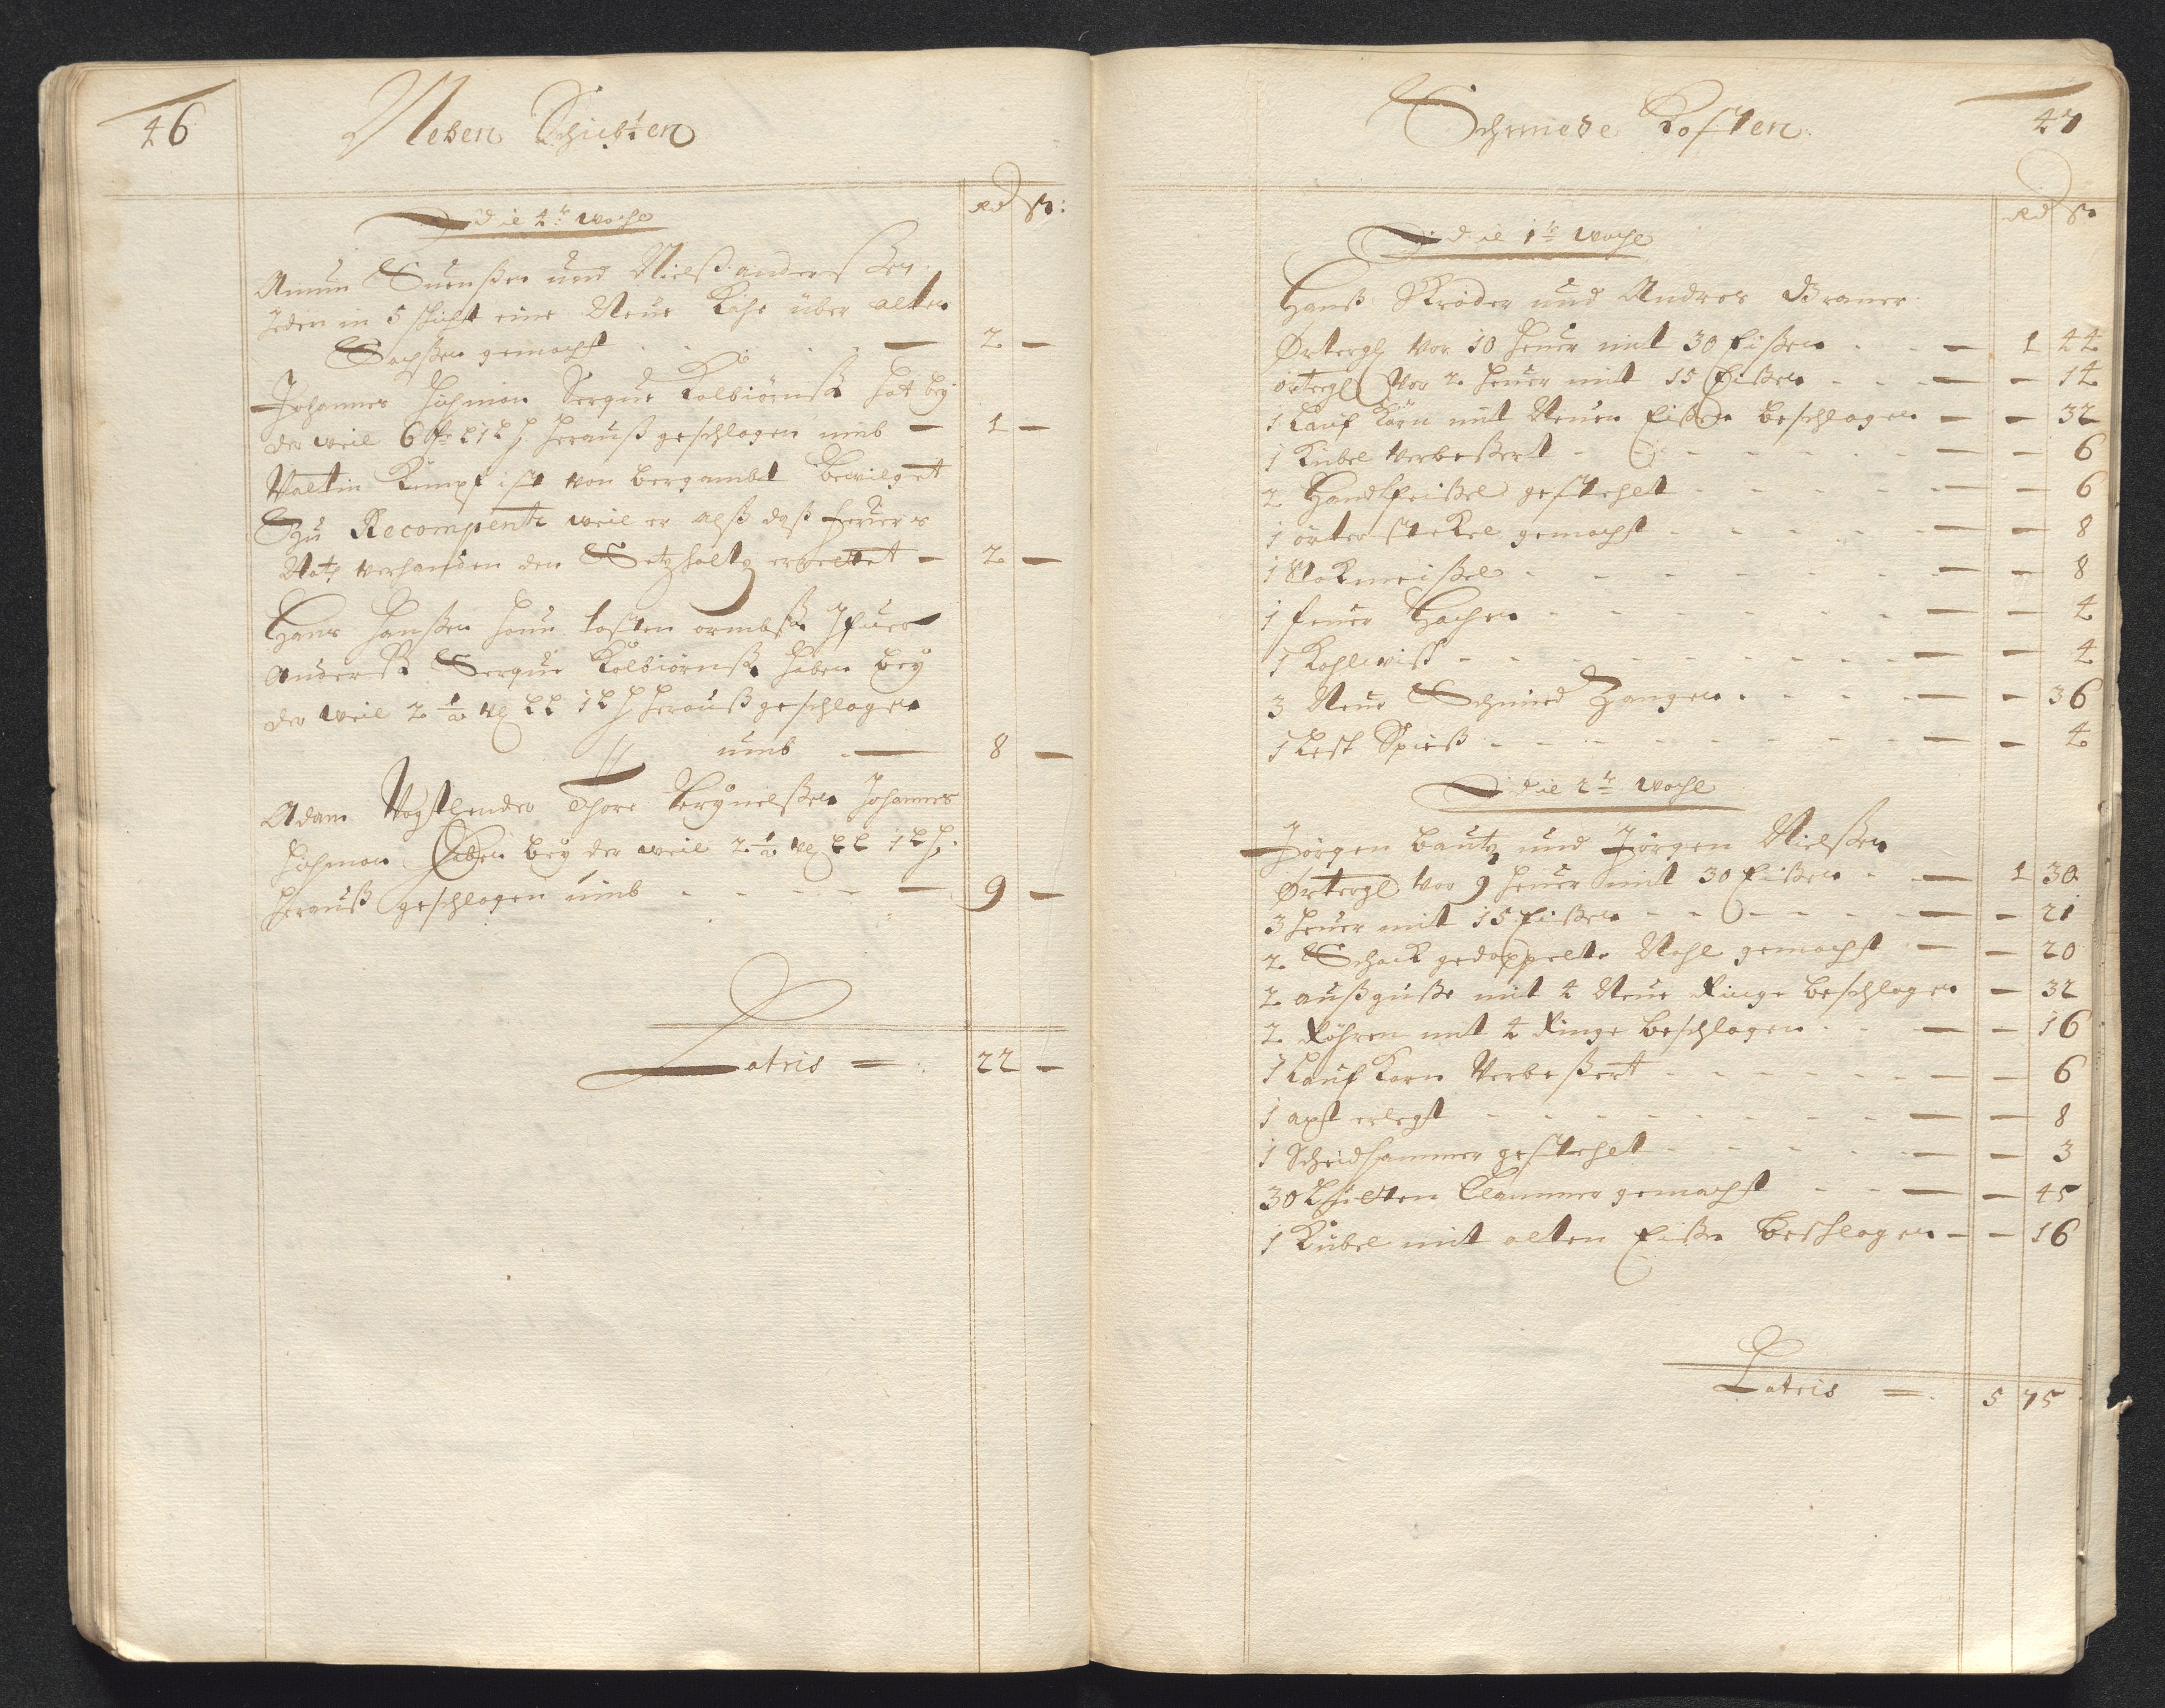 46
Neben Schichten
Rd ß:
Die 4te woche
Amun Suenßen und Nielß anderßen
Jeden in 5 schicht eine Neue Kaße über alten
Sachßen gemacht - 2 -
Johannes Hichman Sergue Kolbiörnß hat bey
der weil 6 herauß geschlagen umb - 1 -
Valtin Kimpf ist von bergambt bewilget
Zu Recompentz weil er alß daß feuers
Noth verhanden den Setzholtz errettet - 2 -
Hans Hanßen Joun tosten ormbß
Anderß Sergue Kolbiörnß haben bey
der weil 2 ½ herauß geschlagen
umb - 8 -
Adam Vogtlender Thore Brynelßen Johannes
Hichman haben bey der weil 2 ½
herauß geschlagen umb - 9 -
Latris = 22 -
Schmiede Kosten
47
Rd ß
Die 1te woche
Hanß Skröder und Andres Braner
Örtergl vor 10 heuer mit 30 Eißen - 1 44
örtergl vor 2 heuer mit 15 Eißen - - 14
1 Lauf Karn mit Neuen Eißen beschlagen - - 32
1 Kübel verbeßert - - 6
2 Handtfeißel gestehlt - - 6
1 örter stekel gemacht - - 8
1 Stokmeißel - - 8
1 feuer Hachen - - 4
1 Kohlwiß - - 4
3 Neue Schmied Zangen - - 36
1 Lest Spieß - - 4
Die 2te woche
Jörgen Bautz und Jörgen Nielßen
Örtergl vor 9 heuer mit 30 Eißen - 1 30
3 heuer mit 15 Eißen - - 21
2 Schock gedoppelte Nahl gemacht - - 20
2 außguße mit 4 Neue Ringe beschlagen - 32
2 Röhren mit 4 Ringe beschlagen - - 16
1 Lauf Karn Verbeßert - - 6
1 axt erlegt - - 8
1 Scheidhammer gestehlt - - 3
30 Clammer gemacht - - 45
1 Kübel mit alten Eißen beschlagen - - 16
Latris = 5 75